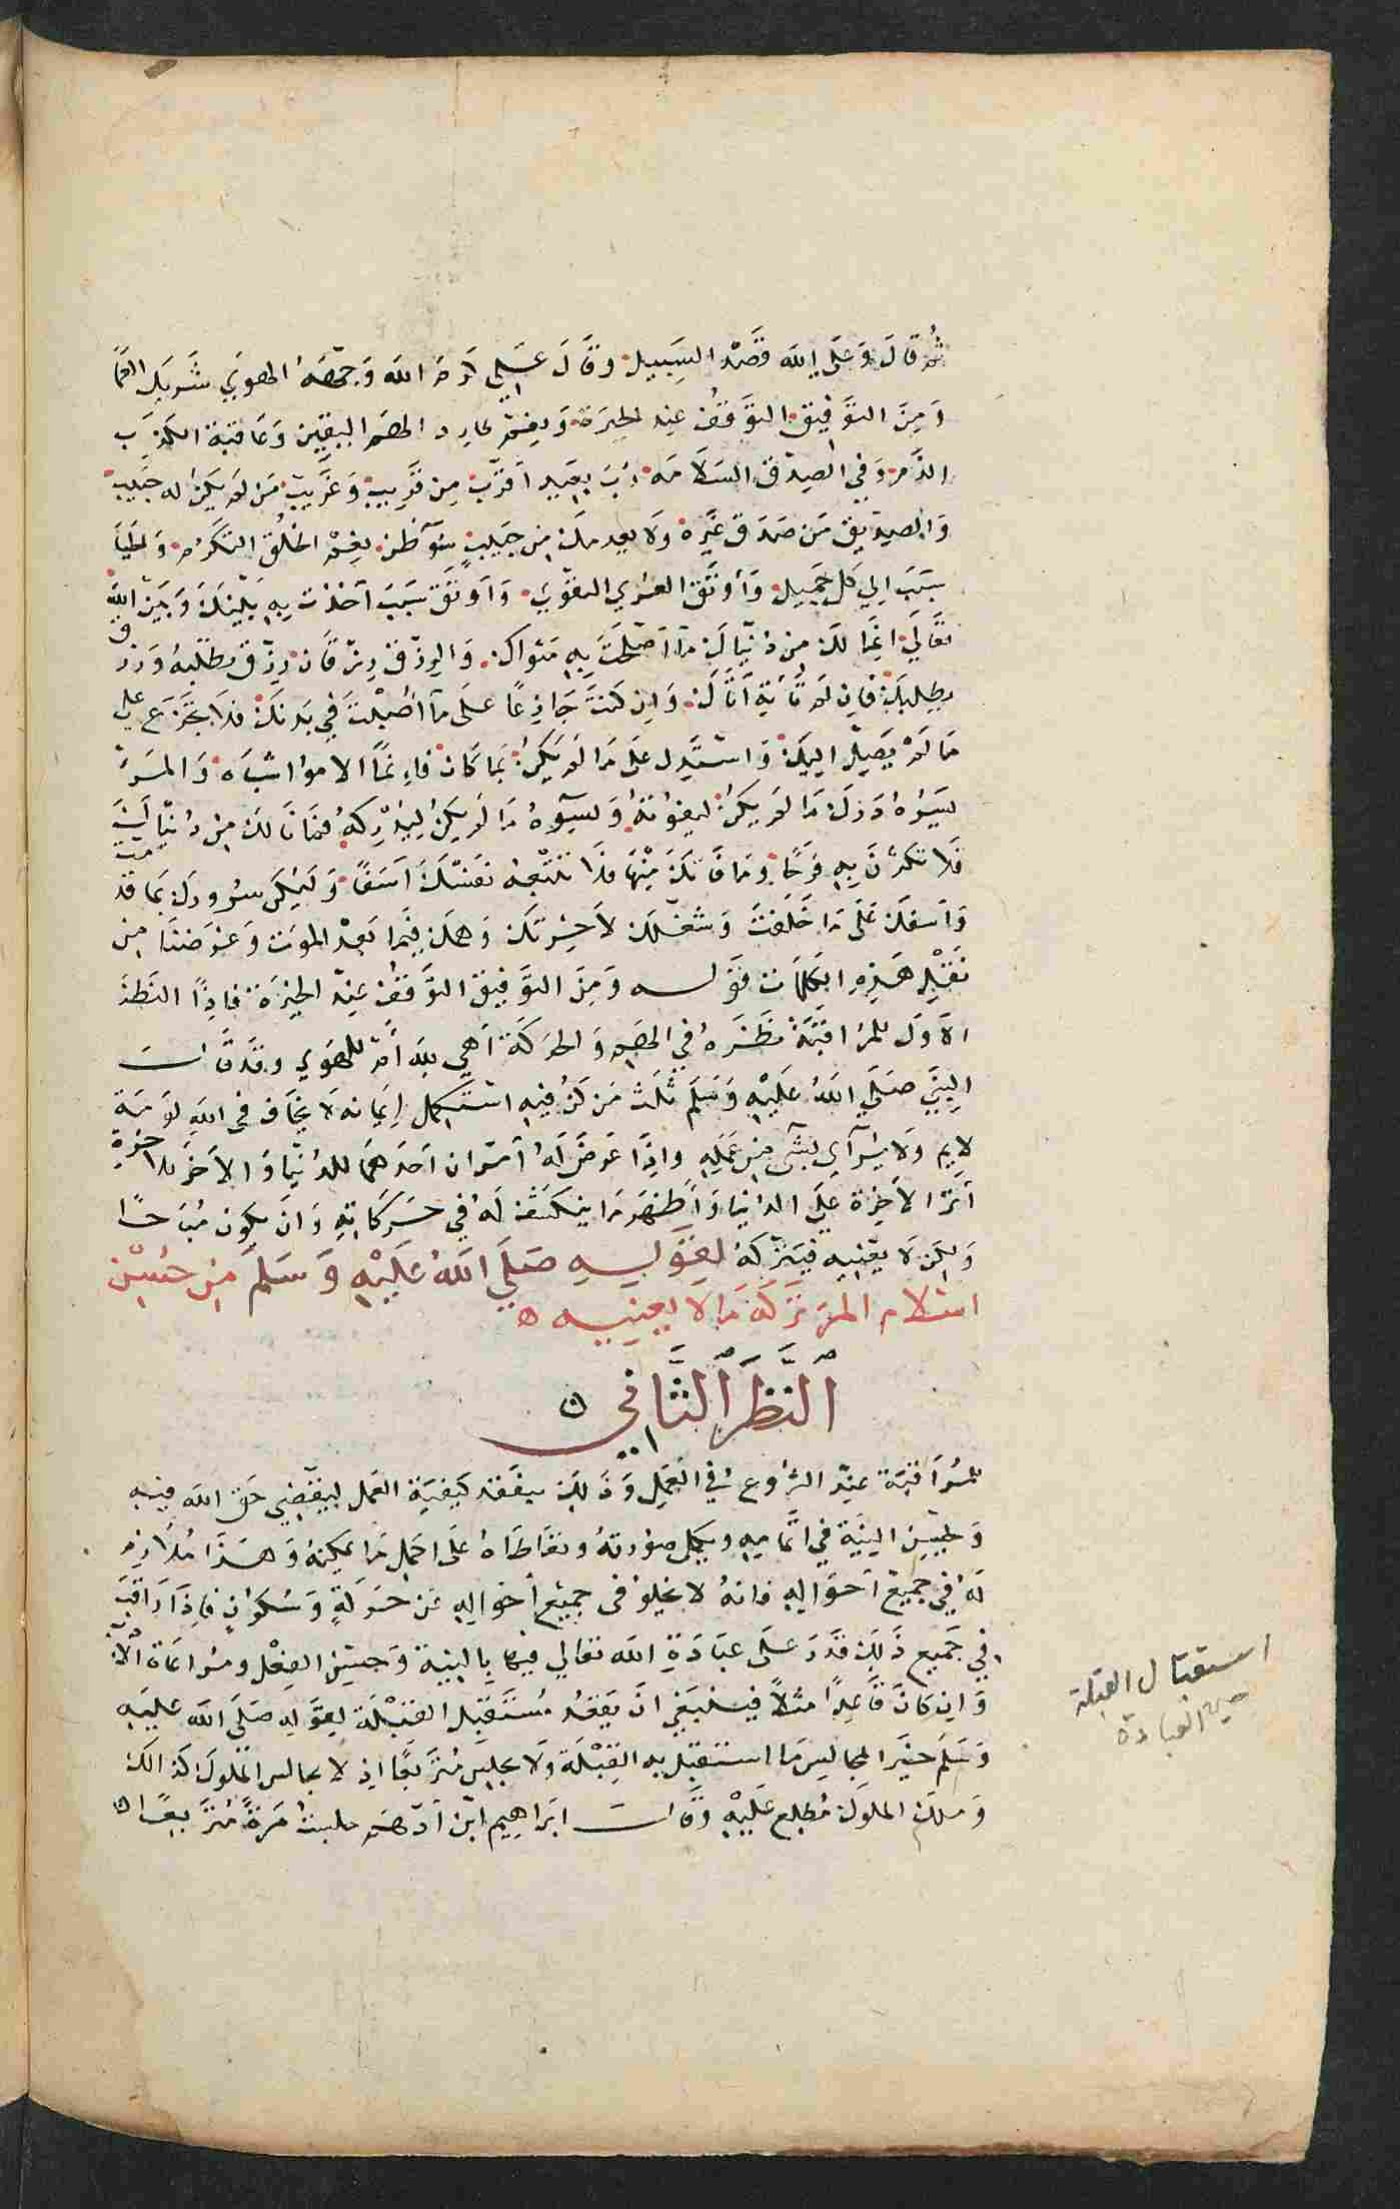 ثُمَّ قالَ وَعَلَى اللَّه قَصْدُ السَّبِيل وقَالَ عَلي كَرَّمَ اللَّه وَجْهَهُ الهوَي شَريك العَمَا
وَمِنَ التَّوْفيق التوَقّفُ عِنْدَ الحيرَة وَنِعْمَ طارد الهمّ اليقِين وَعَاقبَة الكذِب
الذَّم وَفي الصِدْق السَلامَة رُبَ بَعِيد اَقرَب مِن قَرِيب وَغَريب مَن لم يَكُن له حَبيبْ
وَالصِديق مَن صَدَق غَيْبه وَلا يعدمك مِن حَبيبٍ سُوء ظن نِعْمَ الخلُق التكرّم وَالحيَا
سَبَبَ اِلي كل جَميل وَأوثَق العرَي التقوَي وَاَوثَق سَبَب اَخذت بِهِ بَيْنَكَ وَبَيْنَ اللَّه
تعَالَي اِنمَا لكَ مِن دنيَاكَ مَا اَصْلحَتَ بِهِ مَثواكَ وَالرِزق رزقَان رِزق تطلبهُ وَرزق
يطلبكَ فَاِن لم تَأتِهِ اَتَاكَ وَاِن كنتَ جَازِعًا عَلى مَا اُصِيْبَ في يَدِكَ فلاَ تجزع علي
مَا لم يَصِلْ اِليكَ وَاستدِل على مَا لم يَكن بمَا كَان فاِنمَا الامُور اشبَاه وَالمَرءُ
يَسُرّهُ دَرَك مَا لم يكن ليفوته وَيَسُوءُهُ مَا لم يكن لِيُدركهُ فمَا نَالكَ مِن دُنيَاكَ
فَلا تكثرنّ بِهِ فرَحًا ومَا فَاتكَ مِنْهَا فلَا تتبعْهُ نفسَكَ اَسَفًا وَليَكن سرُورك بمَا قدمت
وَاَسفكَ عَلَى مَا خَلفتَ وَشغلكَ لاَخِرتكَ وَهمكَ فِيمَا بَعْدَ الموت وَغرَضنَا مِن
نَقْلِ هَذِهِ الكلمَات قَوْلـه وَمِنَ التوَفِيق التوَقفُ عِنْدَ الحيْرَة فَاِذًا النَظر
الاَول للمُرَاقبَة نظَرهُ في الهمِ وَالحرَكَة اَهي لِلّه اَم للهوي وقَدقَالَ
النبِيّ صَلَّي اللَّهُ عَلَيْهِ وَسَلم ثَلَث مَن كنّ فيهِ استكمل اِيمَانه لَا يخَاف في اللَّهِ لَوْمَة
لايم وَلا يُرَآي بشي مِن عَملِهِ وَاِذَا عَرَضَ لَهُ اَمرَان اَحَدهمَا للدُنيَا وَالاَخر للاخرةِ
آثر الاَخِرَة عَلَى الدُنيَا وَأَظهَر مَا ينكشِفُ لَهُ في حَركَاتِهِ وَان يكون مُبَاحًا
وَلكِن لَا يَعْنيه فيَتركهُ لِقَوْلِهِ صَلَي اللَّهُ عَلَيْهِ وَسَلم مِن حُسْن
اسْلام المرَءِ تَركهُ مَا لا يعنِيه ه
اَلنَّظَرُ الثَّانِي ه
للمُرَاقبَة عِنْد الشرُوع في العَمَلِ وَذَلِكَ بتفَقد كَيفيَة العَمَل ليَقضِي حَق اللَّه فِيهِ
وَيُحسِن النِيَة في اتمَامِهِ ويكمل صُورتهُ وتعَاطَاهُ عَلَى اكمل مَا يمكنهُ وَهذَا مُلَازم
لَهُ في جَميع اَحوَالِهِ فانهُ لا يخلو في جَميع اَحوَالِهِ عَن حَركةٍ وَسُكونٍ فاِذَا رَاقَبَ
في جَميع ذَلِكَ قَدَرَ عَلَى عبَادَةِ اللَّه تعَالي فيهَا بِالنِيَة وَحسن الفِعْل ومُراعَاة الاَدَب
وَاِن كَانَ قَاعِدًا مَثلاً فينبَغي انّ يقعُد مُستَقبِل القبْلَة لِقَولِهِ صَلَي اللَّه عَليهِ
وَسَلم خيْر المجالِسِ مَا استقبِل بهِ القِبْلَة وَلا يجلِس مُتَرَبِعًا اِذ لا يجالس الملُوك كذالك
وَملك الملُوك مُطلِع عَليْهِ وقَالَ ابرَاهِيم ابْن اَدهَم جلسْت مَرَةً مُتربِعًا ه
استقبال القبلة
العبادة